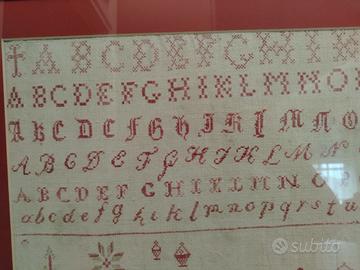 A B C D E F G H I K
A B C D E F G H I K L M N O
A B C D E F G H I K L M N O
A B C D E F G H I K L M N
A B C D E F G H I K L M N O P
a b c d e f g h i k l m n o p q r s t u
subito